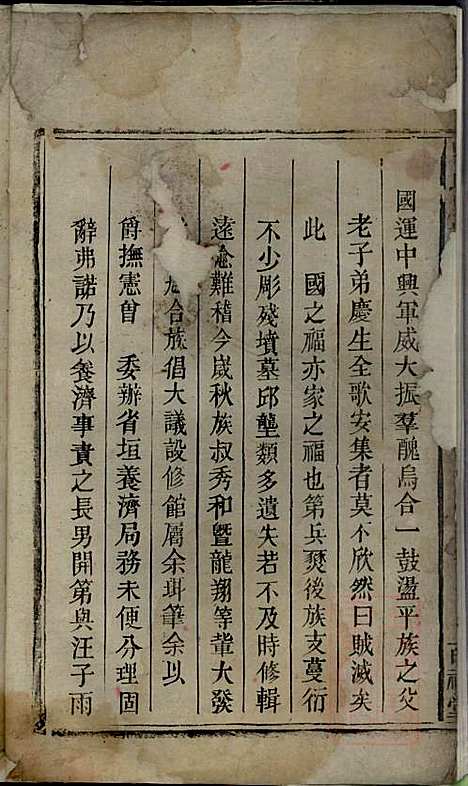 國運中興軍威大振羣醜烏合一鼓盪平族之父
老子弟慶生全歌安集者莫不欣然曰賊滅矣
此 國之福亦家之福也第兵燹後族支蔓衍
不少彫殘墳墓邱壟類多遺失若不及時修輯
遠愈難稽今歲秋族叔秀和暨龍翔等輩大發
合族倡大議設修館屬余珥筆余以
爵撫憲曾 委辦省垣養濟局務未便分理固
辭弗諾乃以養濟事責之長男開第與汪子雨